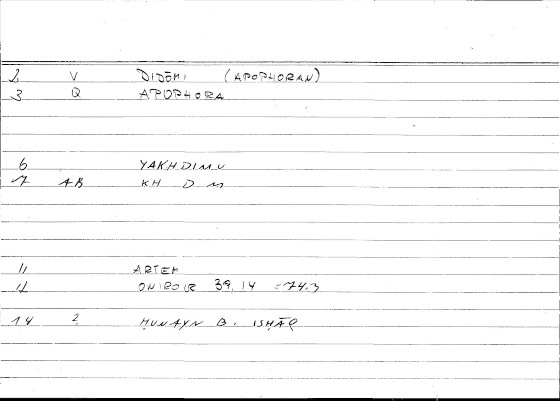 2 V DIDŌMI (APOPHORAN)
3 Q APOPHORA
6 YAKHDIMU
7 AB KH D M
11 ARTEM
12 ONIROCR 39, 14 = 74.3
14 2 ḤUNAYN B. ISḤĀQ